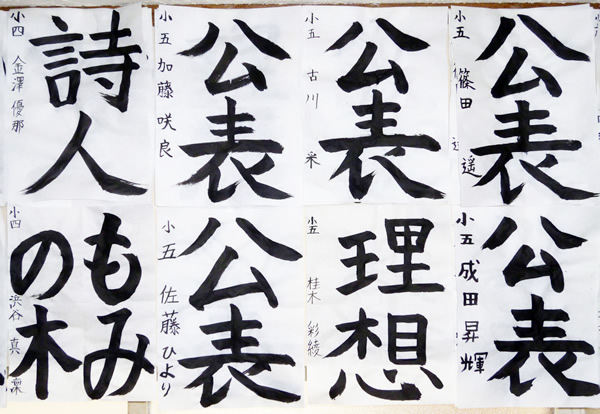 詩人
小四 金澤優那
公表
小五 加藤咲良
公表
小五 古川 采
公表
小五 篠田 遥
もみの木
小四 浜谷真凜
公表
小五 佐藤ひより
理想
小五 桂木彩綾
公表
小五 成田昇輝